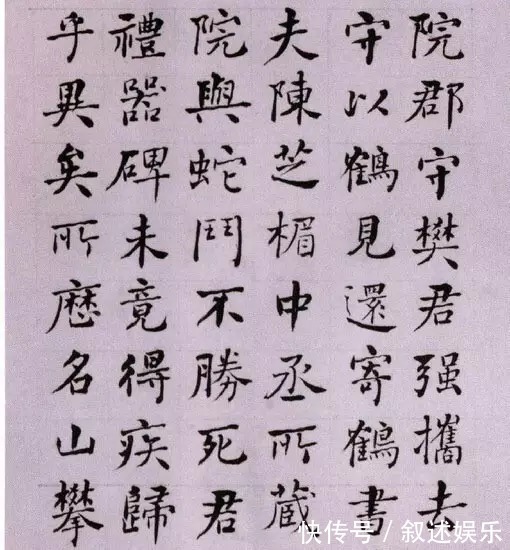 院郡守樊君强攜去
守以鶴見還寄鶴書
夫陳芝楣中丞所藏
院與蛇鬥不勝死君
禮器碑未竟得疾歸
乎異矣所歷名山攀
快传号/叙述娱乐